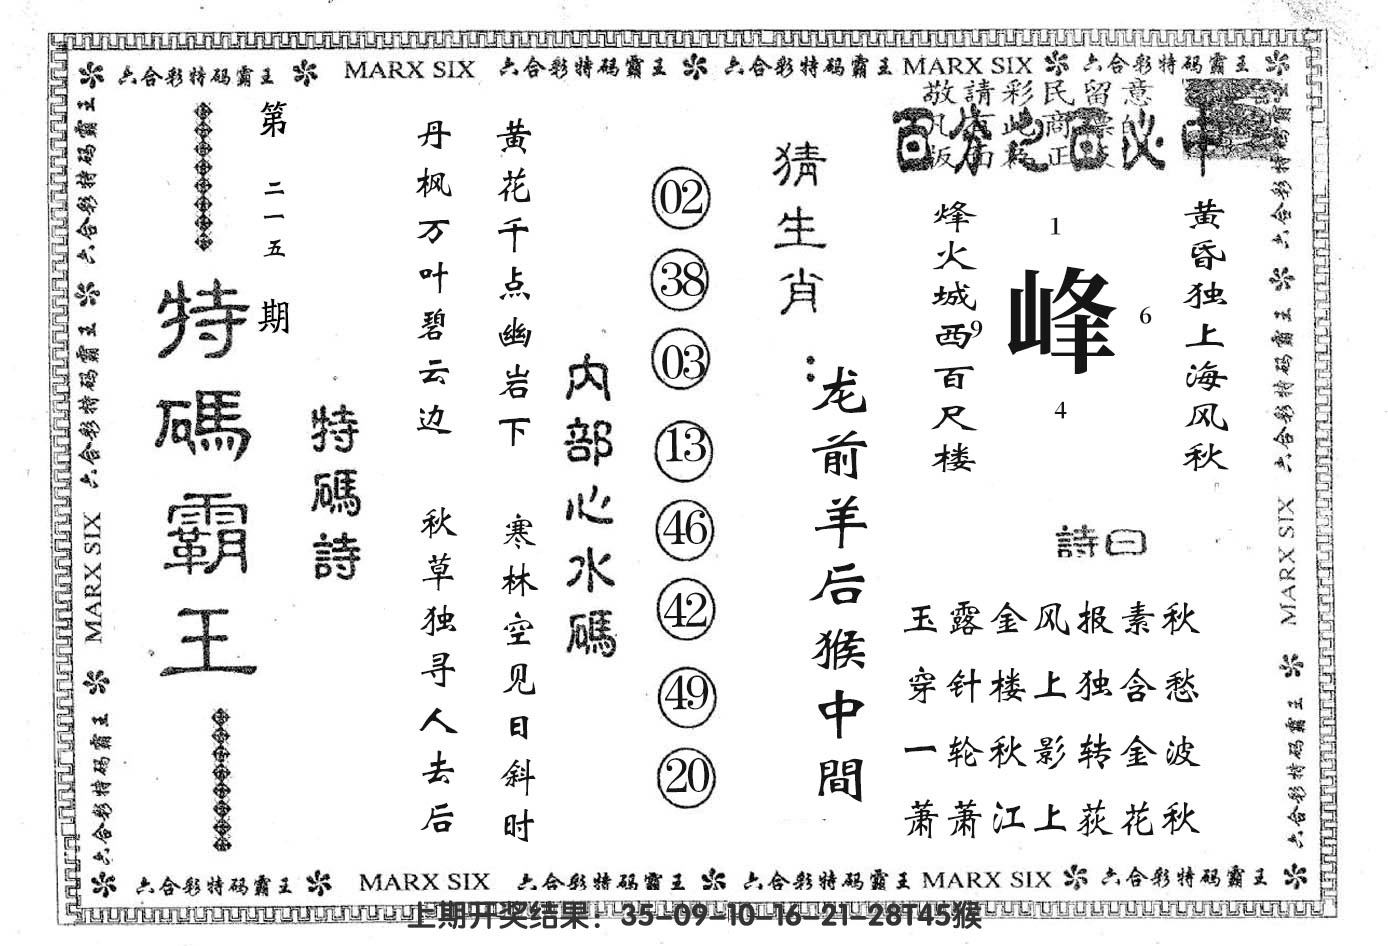 六合彩特码霸王 MARX SIX 六合彩特码霸王 六合彩特码霸王 MARX SIX 六合彩特码霸王
敬請彩民留意
百分之百必中
黄昏独上海风秋
烽火城西百尺楼
1
9 峰 6
4
詩曰
玉露金风报素秋
穿针楼上独含愁
一轮秋影转金波
萧萧江上荻花秋
猜生肖：
龙前羊后猴中間
02
38
03
13
46
42
49
20
内部心水碼
黄花千点幽岩下 寒林空见日斜时
丹枫万叶碧云边 秋草独寻人去后
特碼詩
第二一五期
特碼霸王
六合彩特码霸王 六合彩特码霸王 MARX SIX 六合彩特码霸王
六合彩特码霸王 六合彩特码霸王 MARX SIX 六合彩特码霸王
六合彩特码霸王 MARX SIX 六合彩特码霸王 六合彩特码霸王 MARX SIX 六合彩特码霸王
上期开奖结果：35-09-10-16-21-28T45猴